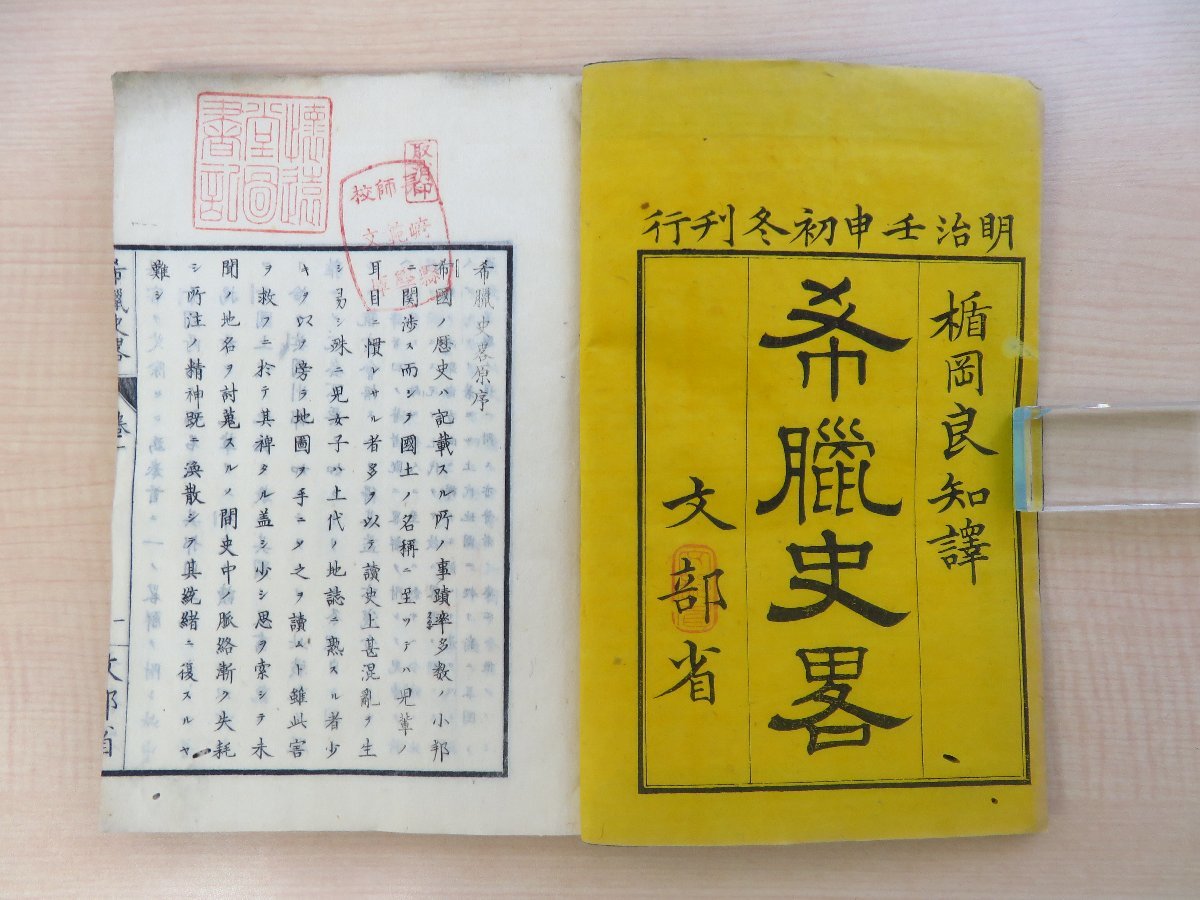 明治壬申初冬刋行
楯岡良知譯
希臘史畧
文部省
希臘史畧原序
希國ノ歴史ハ記載スル所ノ事蹟率多数ノ小邦
ニ関渉ス而シテ國土ノ名稱ニ至ツテハ児輩ノ
耳目ニ慣レサル者多ク以テ讀史上甚混亂ヲ生
シ易シ殊ニ児女子ハ上代ノ地誌ニ熟スル者少
キヲ以ヲ旁ラ地圖ヲ手ニシ之ヲ讀ムト雖此害
ヲ救フニ扵テ其裨タル盖シ少シ思ヲ索シテ未
聞ノ地名ヲ討蒐スルノ間史中ノ脈絡漸ク失耗
シ所注ノ精神既ニ渙散シテ其統緒ニ復スルヤ
難シ
希臘史畧
卷一
一
文部省
懐遠
堂圖
書記
取消印